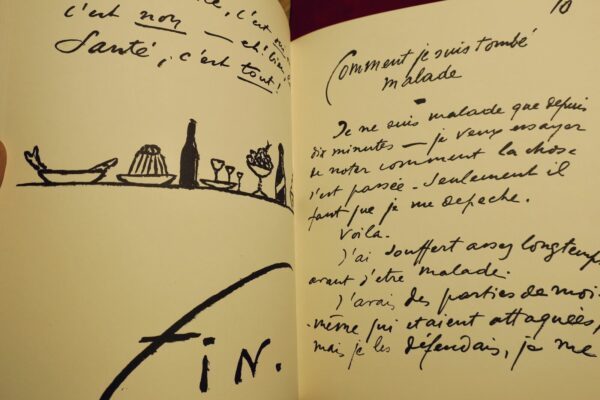 c'est non — et bien
Santé, c'est tout!
FIN.
10
Comment je suis tombé
malade
Je ne suis malade que depuis
dix minutes — je veux essayer
de noter comment la chose
s'est passée. Seulement il
faut que je me dépeche.
Voila.
J'ai souffert assez longtemps
avant d'etre malade.
J'avais des parties de moi-
-même qui etaient attaquées,
mais je les défendais, je me